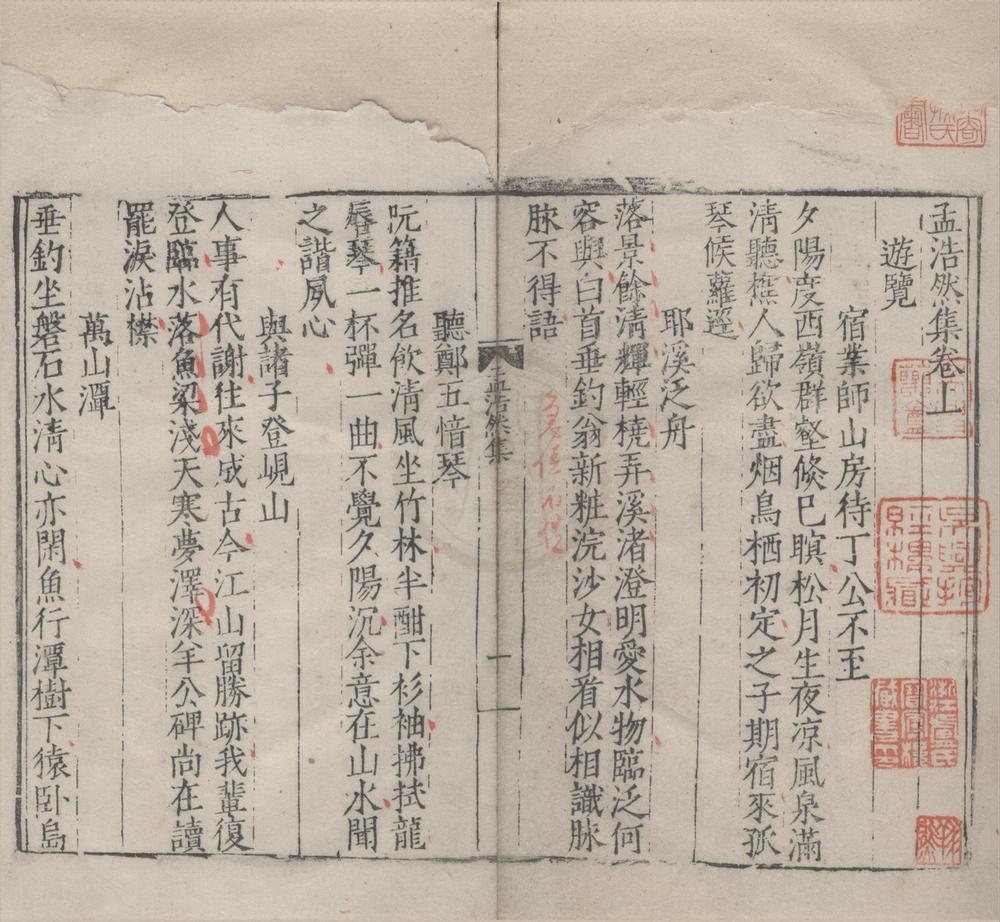 孟浩然集卷上
遊覽
宿業師山房待丁公不至
夕陽度西嶺群壑倐已瞑松月生夜凉風泉滿
清聽樵人歸欲盡烟鳥栖初定之子期宿來孤
琴候蘿逕
耶溪泛舟
落景餘清輝輕橈弄溪渚澄明愛水物臨泛何
容與白首垂釣翁新粧浣沙女相看似相識脉
脉不得語
孟浩然集
一
聽鄭五愔琴
阮籍推名飲清風坐竹林半酣下衫袖拂拭龍
唇琴一杯彈一曲不覺夕陽沉余意在山水聞
之諧夙心
與諸子登峴山
人事有代謝往來成古今江山留勝跡我輩復
登臨水落魚梁淺天寒夢澤深羊公碑尚在讀
罷淚沾襟
萬山潭
垂釣坐磐石水清心亦閑魚行潭樹下猿卧島